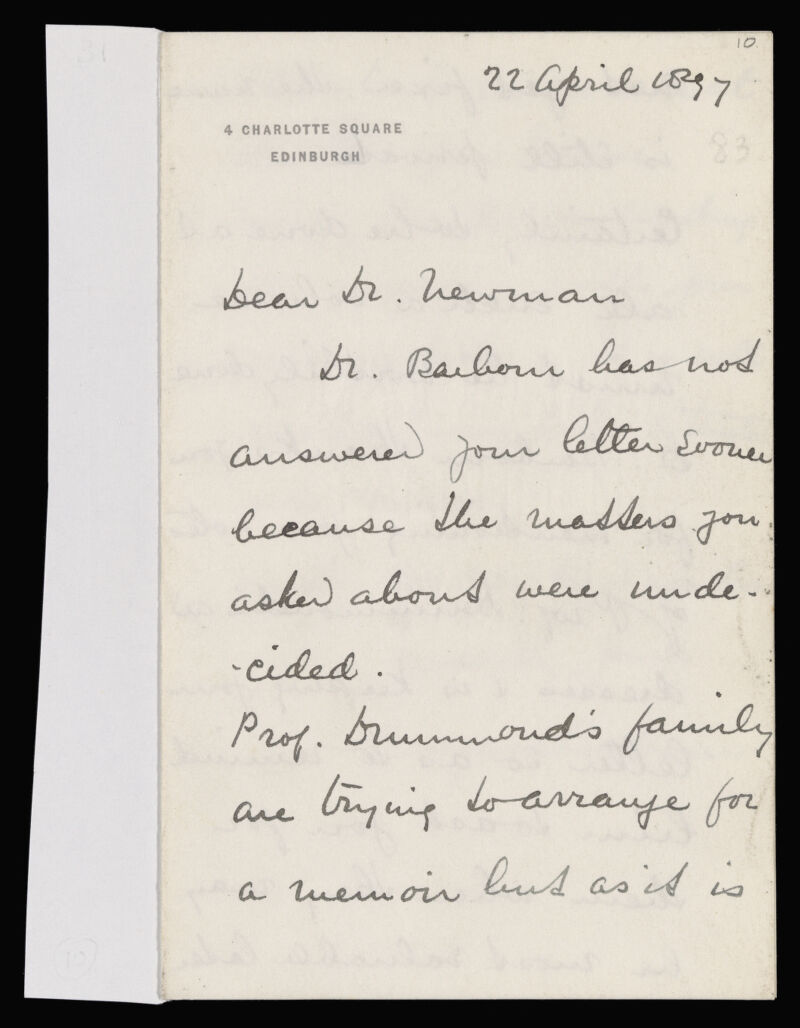 10.
22 April 1897
4 CHARLOTTE SQUARE
EDINBURGH
83
Dear Dr. Newman
Dr. Barbour has not
answered your letter sooner
because the matters you
asked about were unde-
-cided.
Prof. Drummond's family
are trying to arrange for
a memoir but as it is